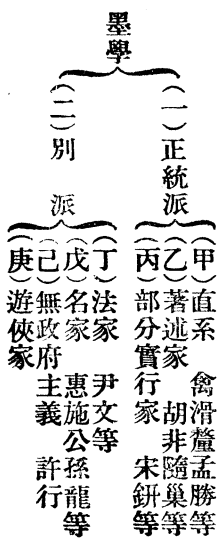 墨學
（一）正統派
（甲）直系　禽滑釐孟勝等
（乙）著述家　胡非隨巢等
（丙）部分實行家　宋鈃等
（二）別　派
（丁）法家　尹文等
（戊）名家　惠施公孫龍等
（己）無政府主義　許行
（庚）遊俠家